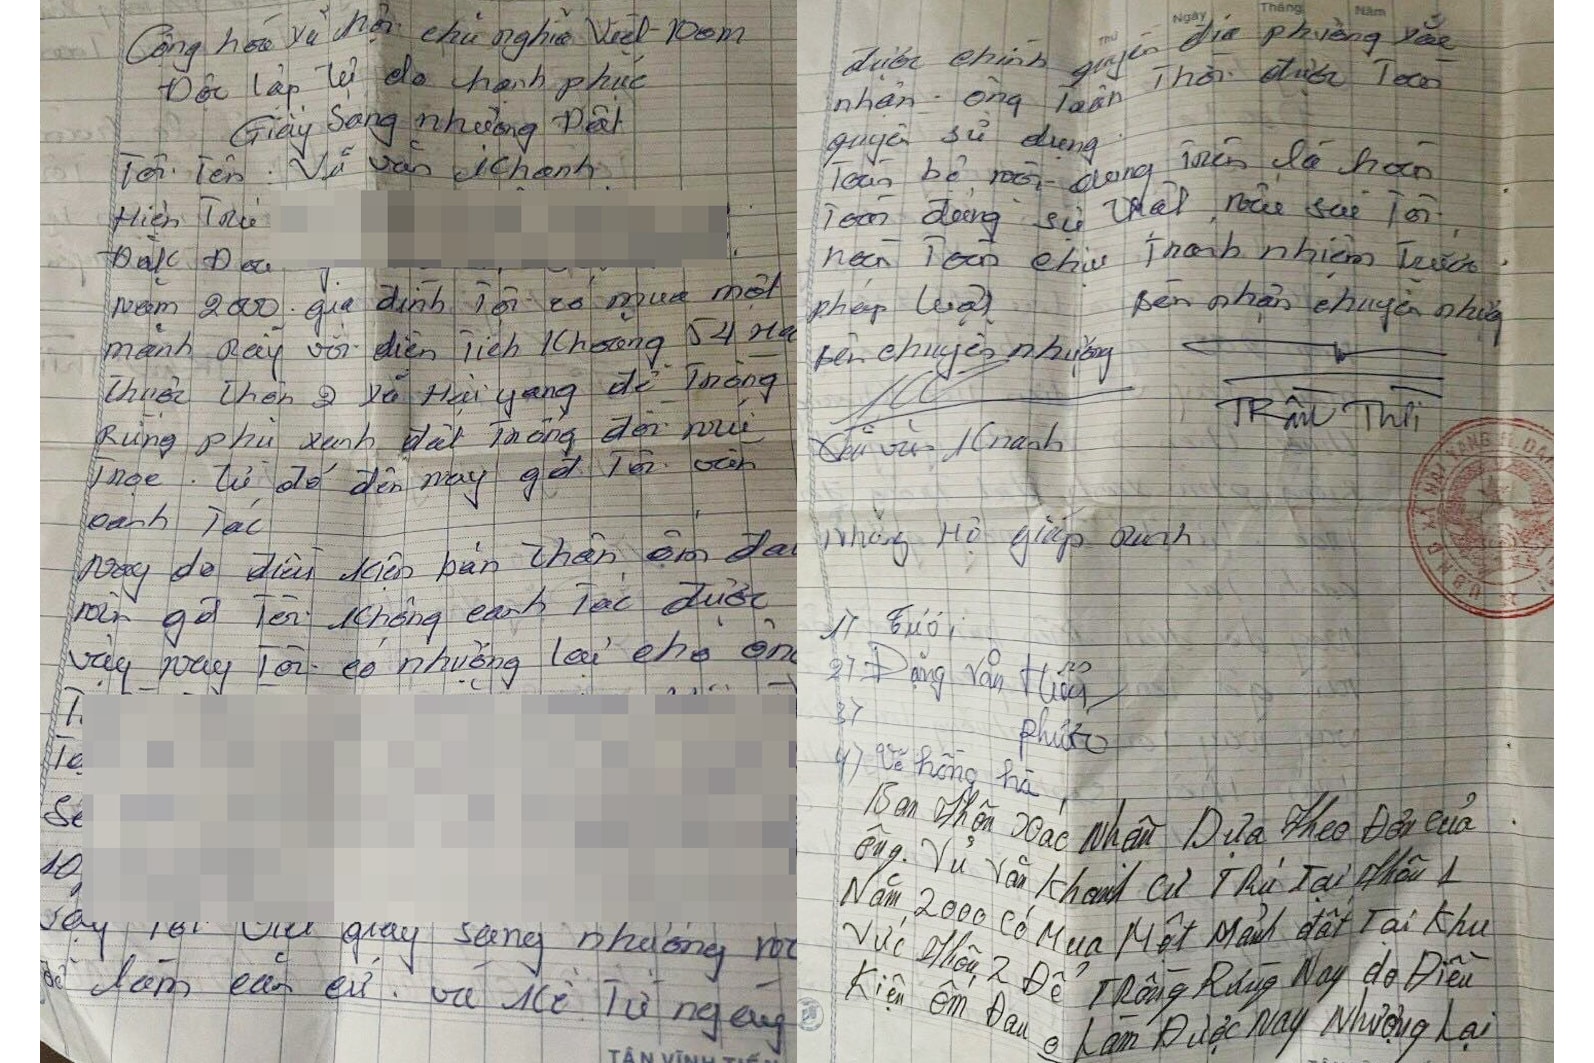 Cộng hoá xã hội chủ nghĩa Việt-Nam
Độc lập Tự do hạnh phúc
Giấy Sang nhượng Đất
Tôi Tên: Vũ văn Khanh
Hiện Trú
Đăk Đoa
Năm 2000. gia đình Tôi có mua một
mảnh Rẫy với diện Tích Khoảng 54 Ha
Thuộc Thôn 2 Xã Hải yang để Trồng
Rừng phủ xanh đất Trống đồi núi
Trọc. Từ đó đến nay gđ Tôi vẫn
canh Tác
Nay do điều kiện bản Thân ốm đau
nên gđ Tôi không canh Tác được
vậy nay Tôi có nhượng lại cho ông
T
Tạ
Số
10,
vậy Tôi viết giấy sang nhượng này
để làm căn cứ. và kể Từ ngày
TÂN VĨNH TIẾN
Ngày Tháng Năm
Thứ
được chính quyền địa phương xác
nhận. ông Trần Thới được Toàn
quyền sử dụng
Toàn bộ nội dung Trên là hoàn
Toàn đúng sự thật nếu sai Tôi
hoàn Toàn chịu Trách nhiệm Trước
pháp luật
Bên nhận chuyển nhượng
Bên chuyển nhượng
TRần Thới
Vũ văn Khanh
Những Hộ giáp ranh
1)
2) Đặng Văn Hiển
3) phước
4) Võ hồng hà
Ban Thôn xác Nhận Dựa Theo Đơn của
ông. Vũ Văn Khanh cư TRú Tại Thôn 1
Năm 2000 có Mua Một Mảnh đất Tại Khu
Vực Thôn 2 Để TRồng Rừng Nay do Điều
Kiện ốm Đau Làm Được Nay Nhượng Lại